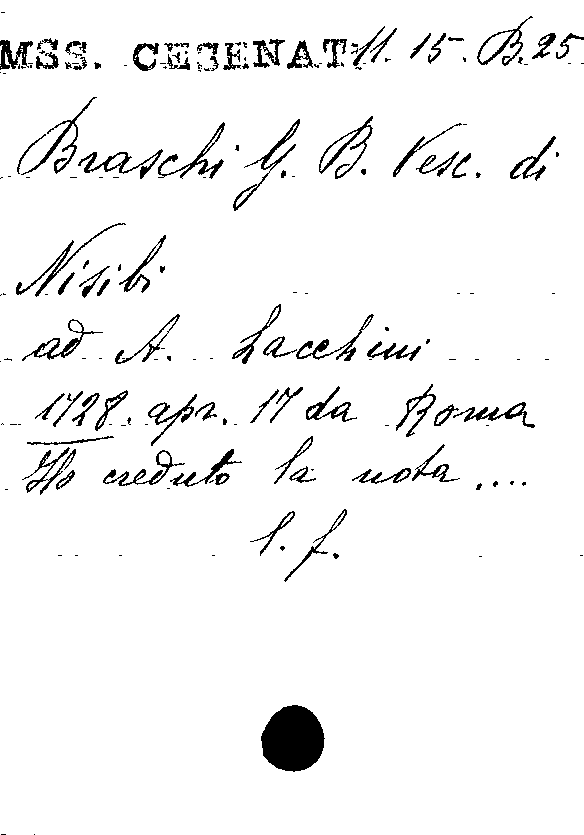 MSS. CESENAT. 11. 15. B. 25
Braschi G. B. Vesc. di
Nisibi
ad A. Lacchini
1728. apr. 17 da Roma
Ho creduto la nota ....
l. f.